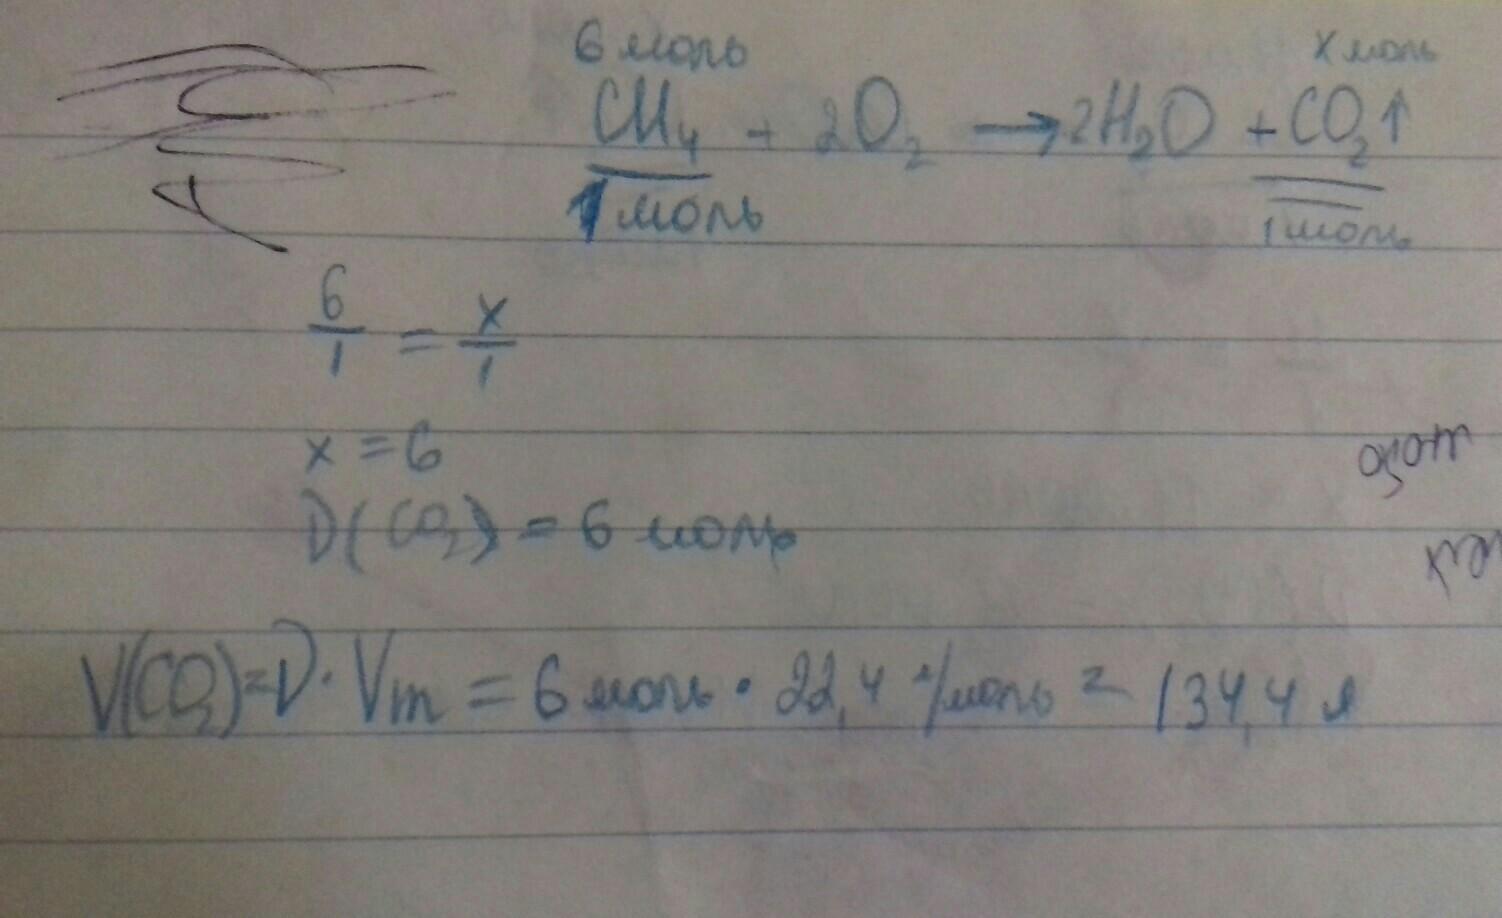 6 моль x моль
CH₄ + 2O₂ → 2H₂O + CO₂↑
1 моль 1 моль
6/1 = x/1
x = 6
D(CO₂) = 6 моль
азот
V(CO₂) = D · Vm = 6 моль · 22,4 л/моль = 134,4 л